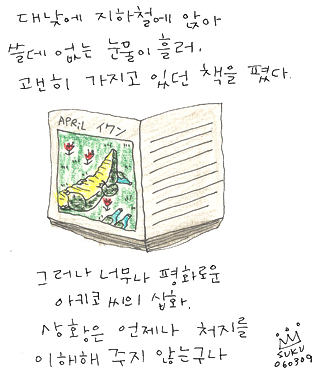 대낮에 지하철에 앉아
쓸데 없는 눈물이 흘러,
괜히 가지고 있던 책을 폈다.
APRIL イワン
그러나 너무나 평화로운
아키코 씨의 삽화.
상황은 언제나 처지를
이해해 주지 않는구나
SUKU
060309